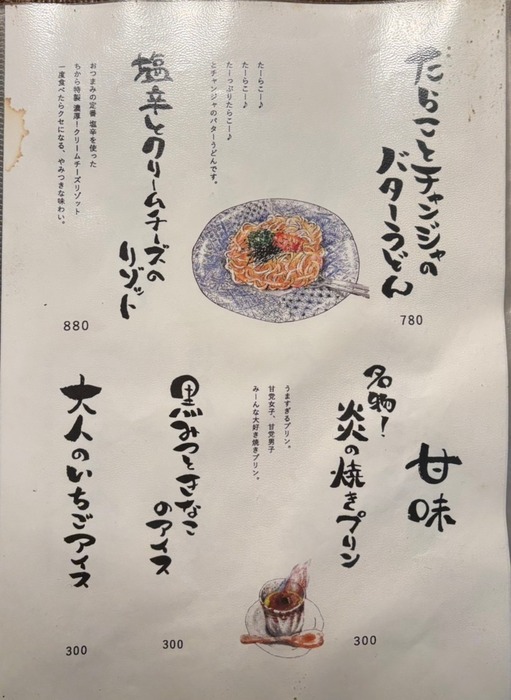 たらことチャンジャの
バターうどん
780
たーらこー♪
たーらこー♪
たーっぷりたらこー♪
とチャンジャのバターうどんです。
塩辛とクリームチーズの
リゾット
おつまみの定番 塩辛を使った
ちから特製 濃厚ークリームチーズリゾット
一度食べたらクセになる、やみつきな味わい。
880
甘味
名物！
炎の焼きプリン
うますぎるプリン。
甘党女子、甘党男子
みーんな大好き焼きプリン。
300
黒みつときなこ
のアイス
300
大人のいちごアイス
300